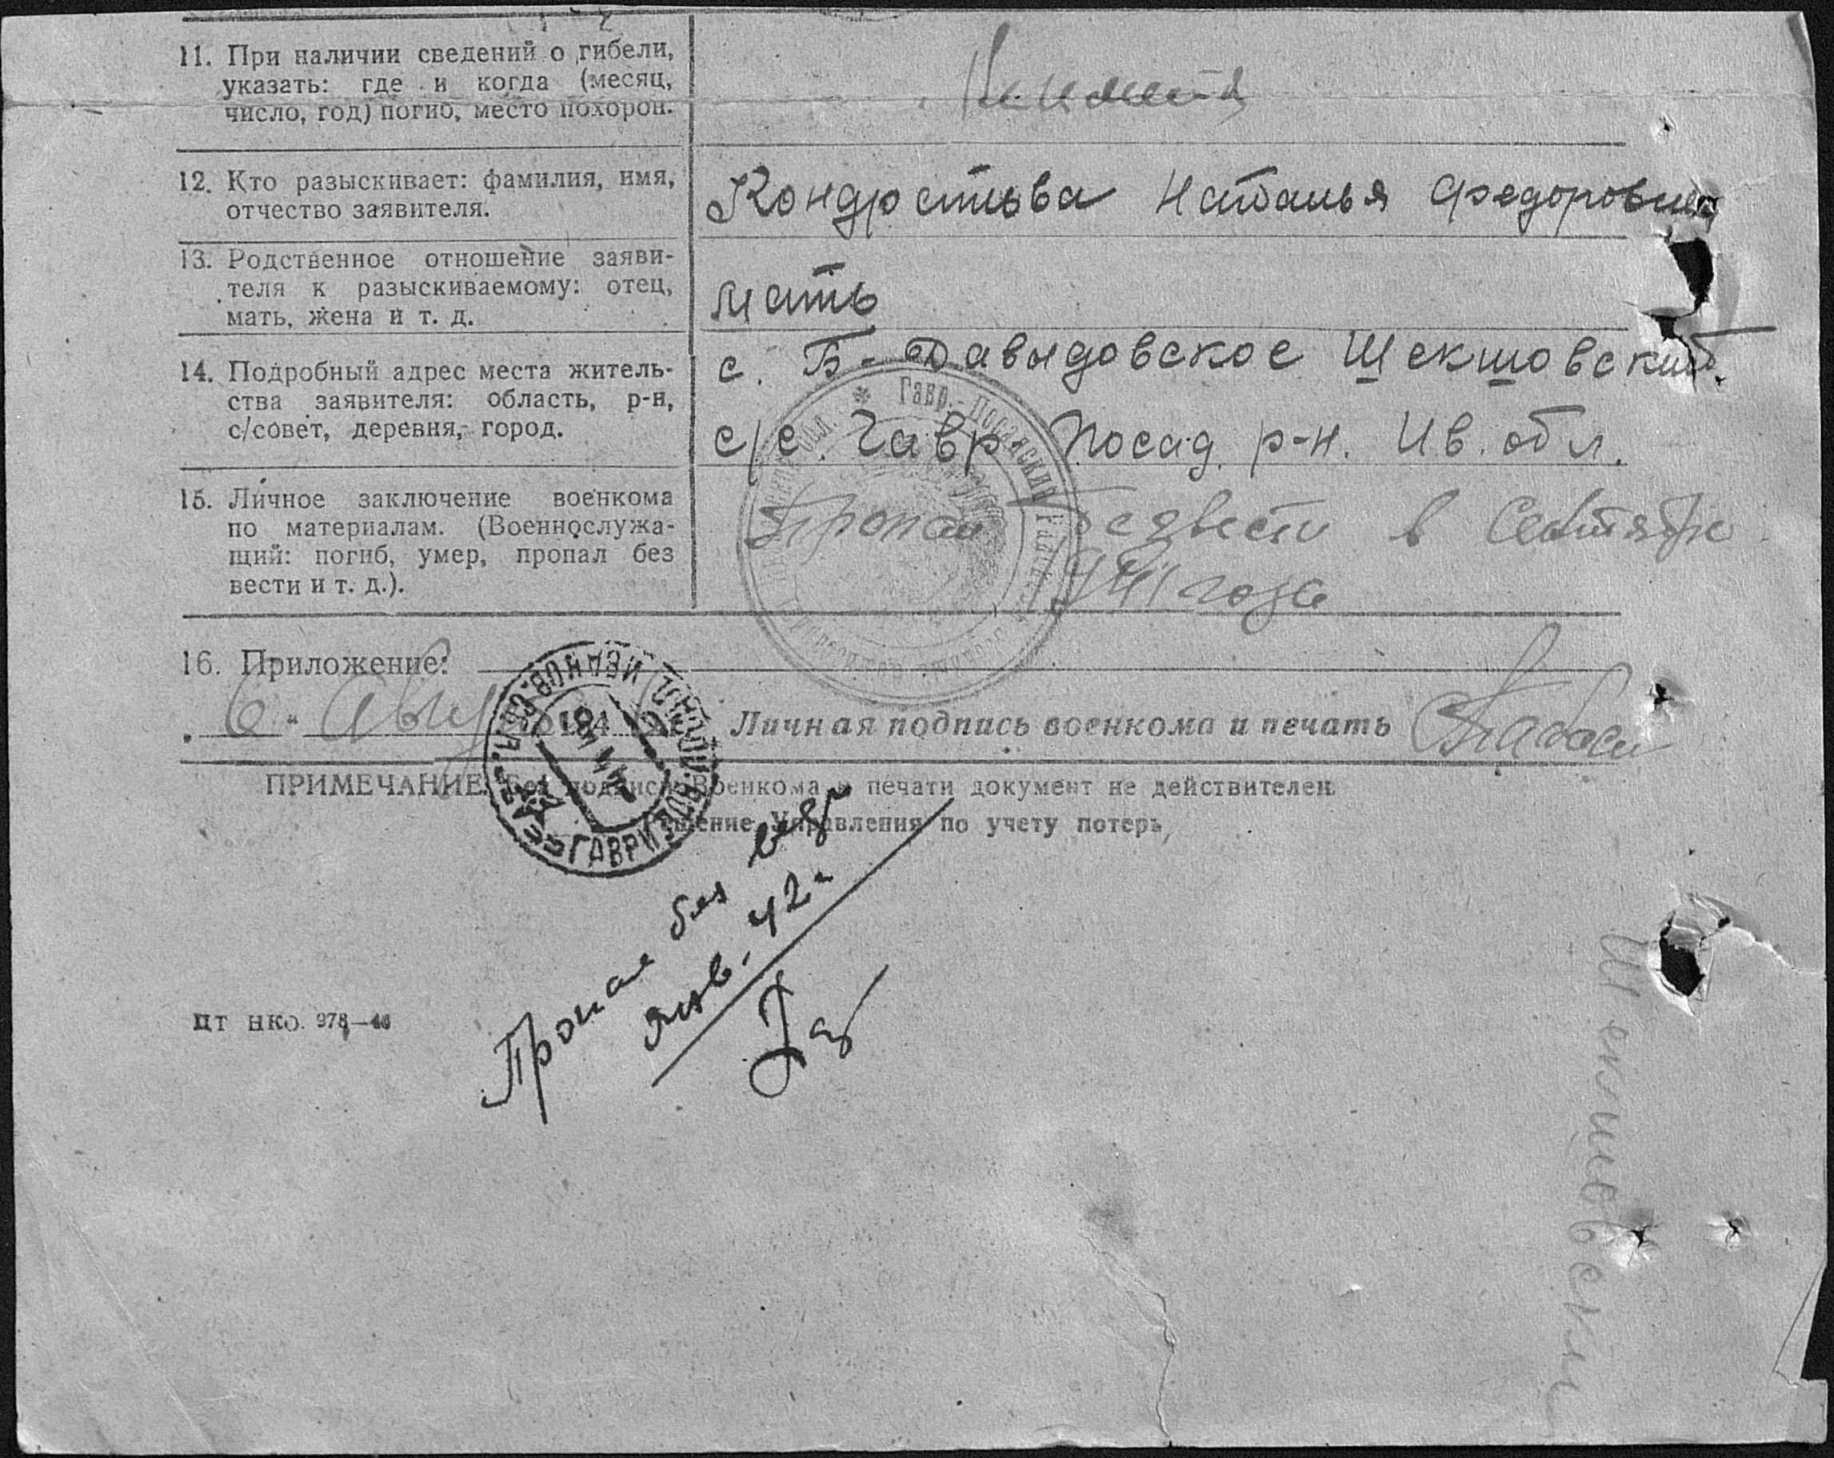 11. При наличии сведений о гибели,
указать: где и когда (месяц,
число, год) погиб, место похорон.
12. Кто разыскивает: фамилия, имя,
отчество заявителя.
Кондратьева Наталья Федоровна
13. Родственное отношение заяви-
теля к разыскиваемому: отец,
мать, жена и т. д.
мать
14. Подробный адрес места житель-
ства заявителя: область, р-н,
с/совет, деревня, город.
с. Б-Давыдовское Шекшовский
с/с. Гавр Посад. р-н. Ив. обл.
15. Личное заключение военкома
по материалам. (Военнослужа-
щий: погиб, умер, пропал без
вести и т. д.).
Пропал без вести в Сентябре
1941 года
16. Приложение:
6 Авг 194
Личная подпись военкома и печать
ПРИМЕЧАНИЕ: Без подписи военкома и печати документ не действителен
Решение Управления по учету потерь
Пропал без вести
янв. 42г
ЦТ НКО. 978—46
Гавр.-Посадский
ИВАНОВСКОЙ
ГАВРИЛОВ
Шекшовский